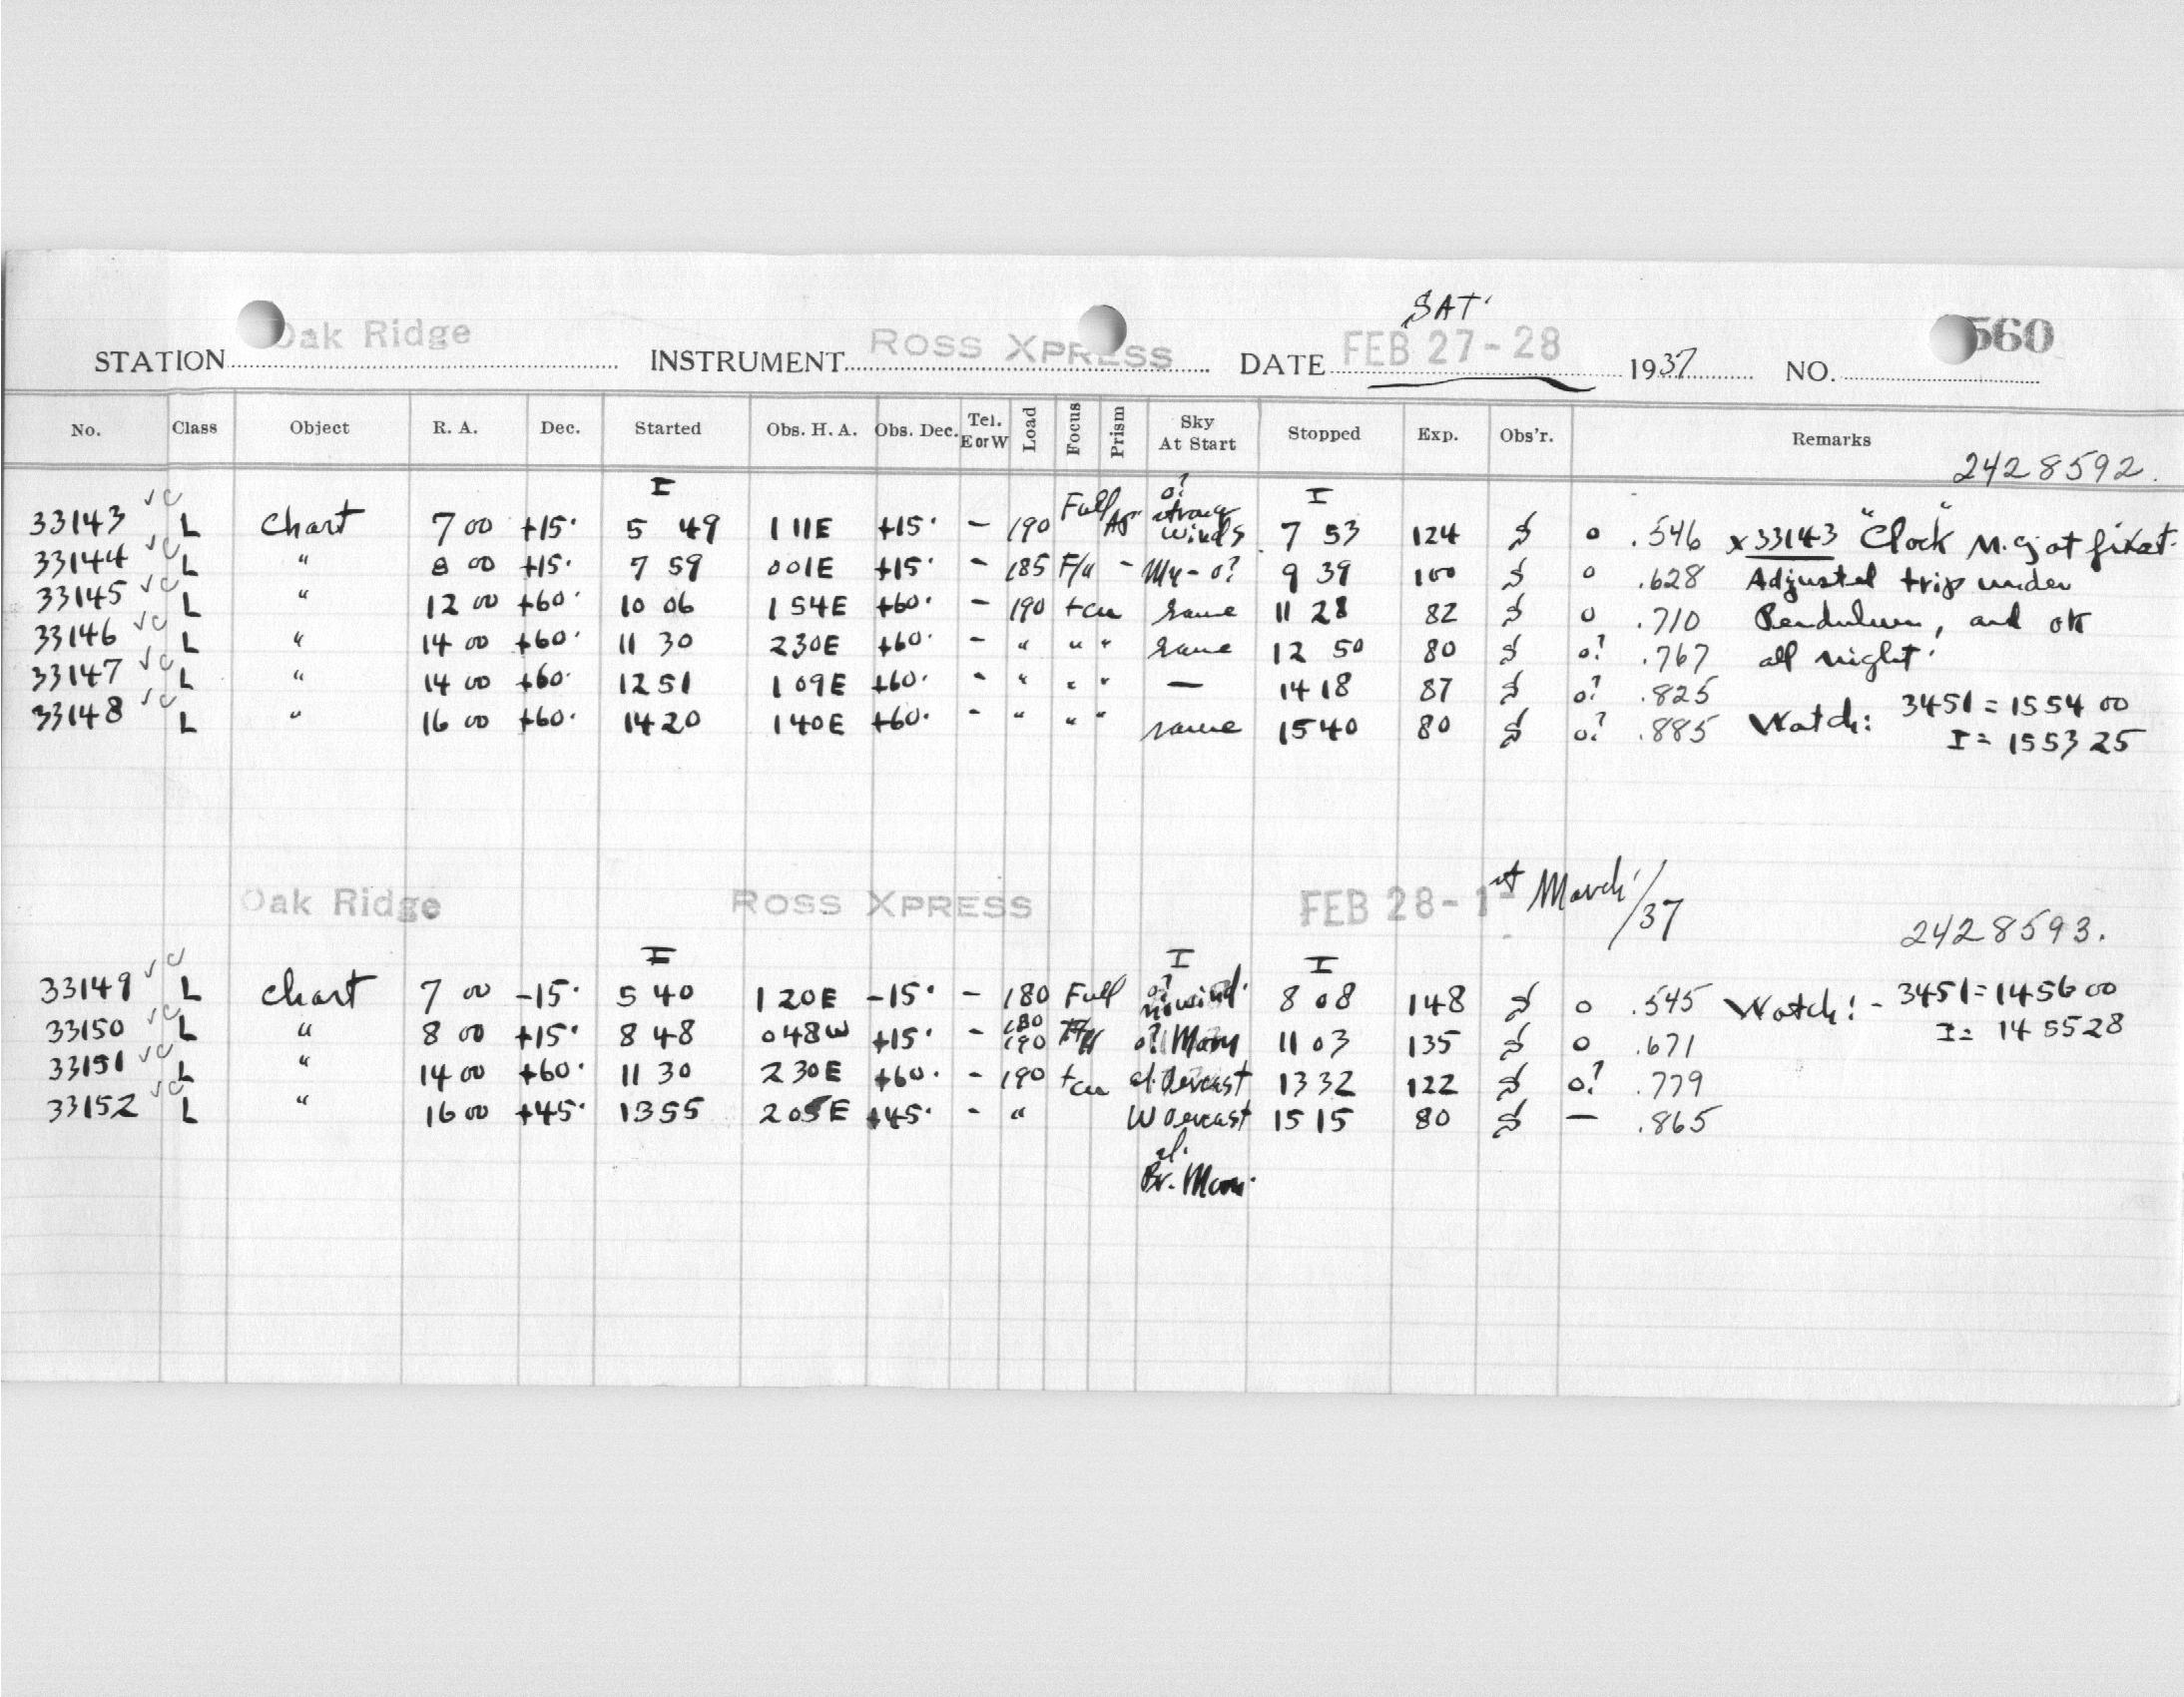 SAT'
STATION Oak Ridge INSTRUMENT ROSS XPRESS DATE FEB 27-28 1937 NO. 560
No. Class Object R. A. Dec. Started Obs. H. A. Obs. Dec. Tel. E or W Load Focus Prism Sky At Start Stopped Exp. Obs'r. Remarks
2428592.
I I
33143 L Chart 7 00 +15° 5 49 1 11E +15° - 190 Full o? strong winds 7 53 124 o .546 x 33143 "Clock" at first.
33144 L " 8 00 +15° 7 59 001E +15° - 185 F/u - - o? 9 39 100 o .628 Adjusted trip under
33145 L " 12 00 +60° 10 06 154E +60° - 190 same 11 28 82 o .710 Pendulum, and ok
33146 L " 14 00 +60° 11 30 230E +60° - " " " same 12 50 80 o? .767 all night.
33147 L " 14 00 +60° 12 51 109E +60° - " " " — 14 18 87 o? .825
33148 L " 16 00 +60° 14 20 140E +60° - " " " same 15 40 80 o? .885 Watch: 3451 = 15 54 00
I = 15 53 25
Oak Ridge ROSS XPRESS FEB 28-1st March/37
2428593.
I I I
33149 L Chart 7 00 -15° 5 40 1 20E -15° - 180 Full o? no wind. 8 08 148 o .545 Watch: - 3451 = 14 56 00
33150 L " 8 00 +15° 8 48 048W +15° - 180 190 o? Moon 11 03 135 o .671 I = 14 55 28
33151 L " 14 00 +60° 11 30 230E +60° - 190 overcast 13 32 122 o? .779
33152 L " 16 00 +45° 13 55 205E +45° - " W overcast 15 15 80 — .865
cl.
Br. Moon.